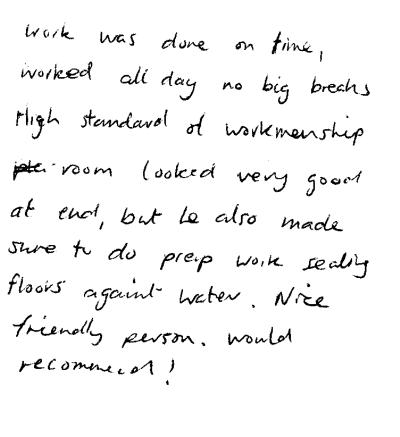 work was done on time,
worked all day no big breaks
High standard of workmenship
room looked very good
at end, but he also made
sure to do prep work sealing
floors againt water. Nice
friendly person. would
recommend!